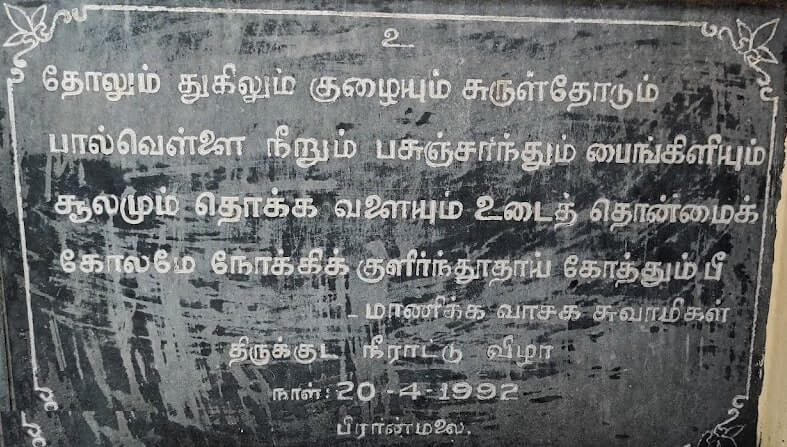 உ
தோலும் துகிலும் குழையும் சுருள்தோடும்
பால்வெள்ளை நீறும் பசுஞ்சார்ந்தும் பைங்கிளியும்
சூலமும் தொக்க வளையும் உடைத் தொன்மைக்
கோலமே நோக்கிக் குளிர்ந்தூதாய் கோத்தும்பீ
- மாணிக்க வாசக சுவாமிகள்
திருக்குட நீராட்டு விழா
நாள்: 20-4-1992
பிரான்மலை.